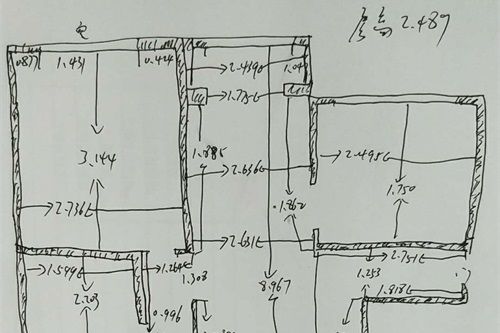 电
层高 2.489
0.877
1.431
0.424
2.439
1.04
1.775
3.144
1.885
2.636
2.495
1.862
1.750
2.736
2.631
2.751
1.599
1.264
1.303
1.253
2.203
8.967
1.818
0.996